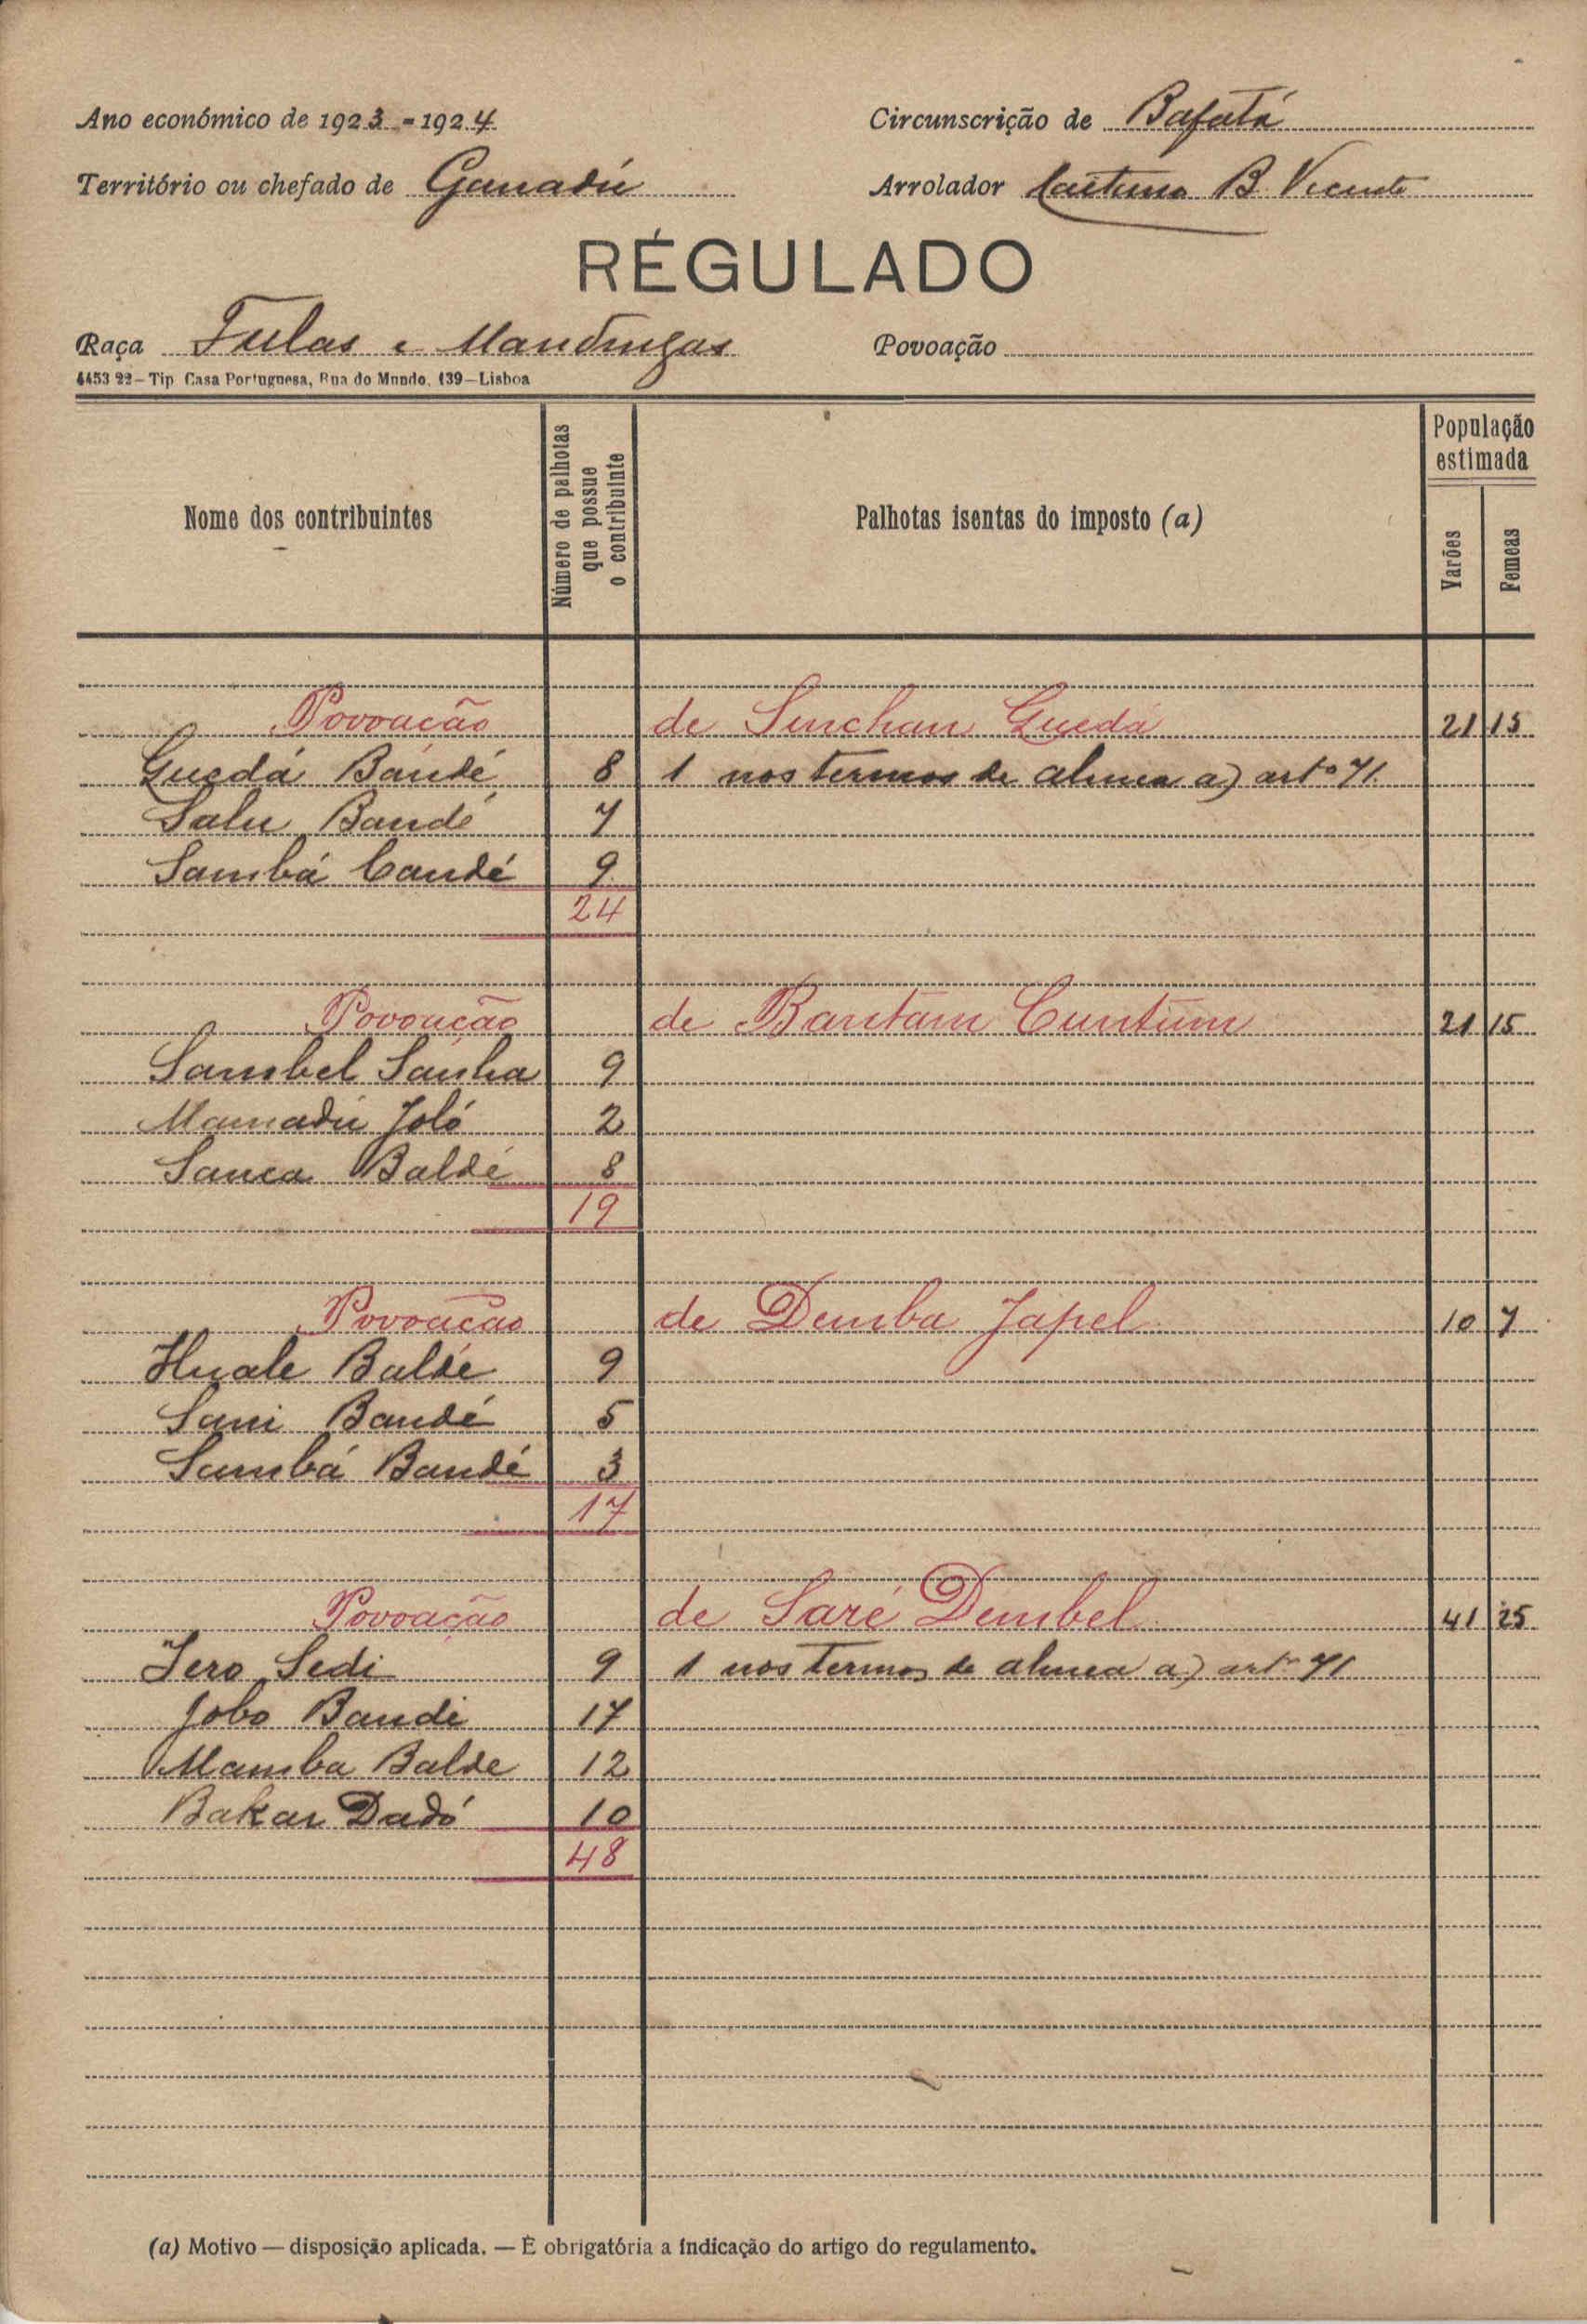 Ano económico de 1923-1924
Circunscrição de Bafatá
Território ou chefado de Ganadú
Arrolador Caetano B. Vicente
RÉGULADO
Raça Fulas e Mandingas
Povoação
4453 22—Tip Casa Portuguesa, Rua do Mundo, 139—Lisboa
Nome dos contribuintes
Número de palhotas que possue o contribuinte
Palhotas isentas do imposto (a)
População estimada
Varões
Femeas
Povoação de Sinchan Guedá 21 15
Guedá Bandé 8 1 nos termos de alinea a) artº 71.
Salu Bandé 7
Sambá Candé 9
24
Povoação de Bantam Cuntum 21 15
Sambel Sanha 9
Mamadú Joló 2
Sanca Baldé 8
19
Povoação de Demba Japel 10 7
Huale Baldé 9
Sani Bandé 5
Sambá Bandé 3
17
Povoação de Saré Dembel 41 25
Jero Sedi 9 1 nos termos de alinea a) artº 71
Jobo Bandé 17
Mamba Balde 12
Bakar Dadó 10
48
(a) Motivo — disposição aplicada. — É obrigatória a indicação do artigo do regulamento.